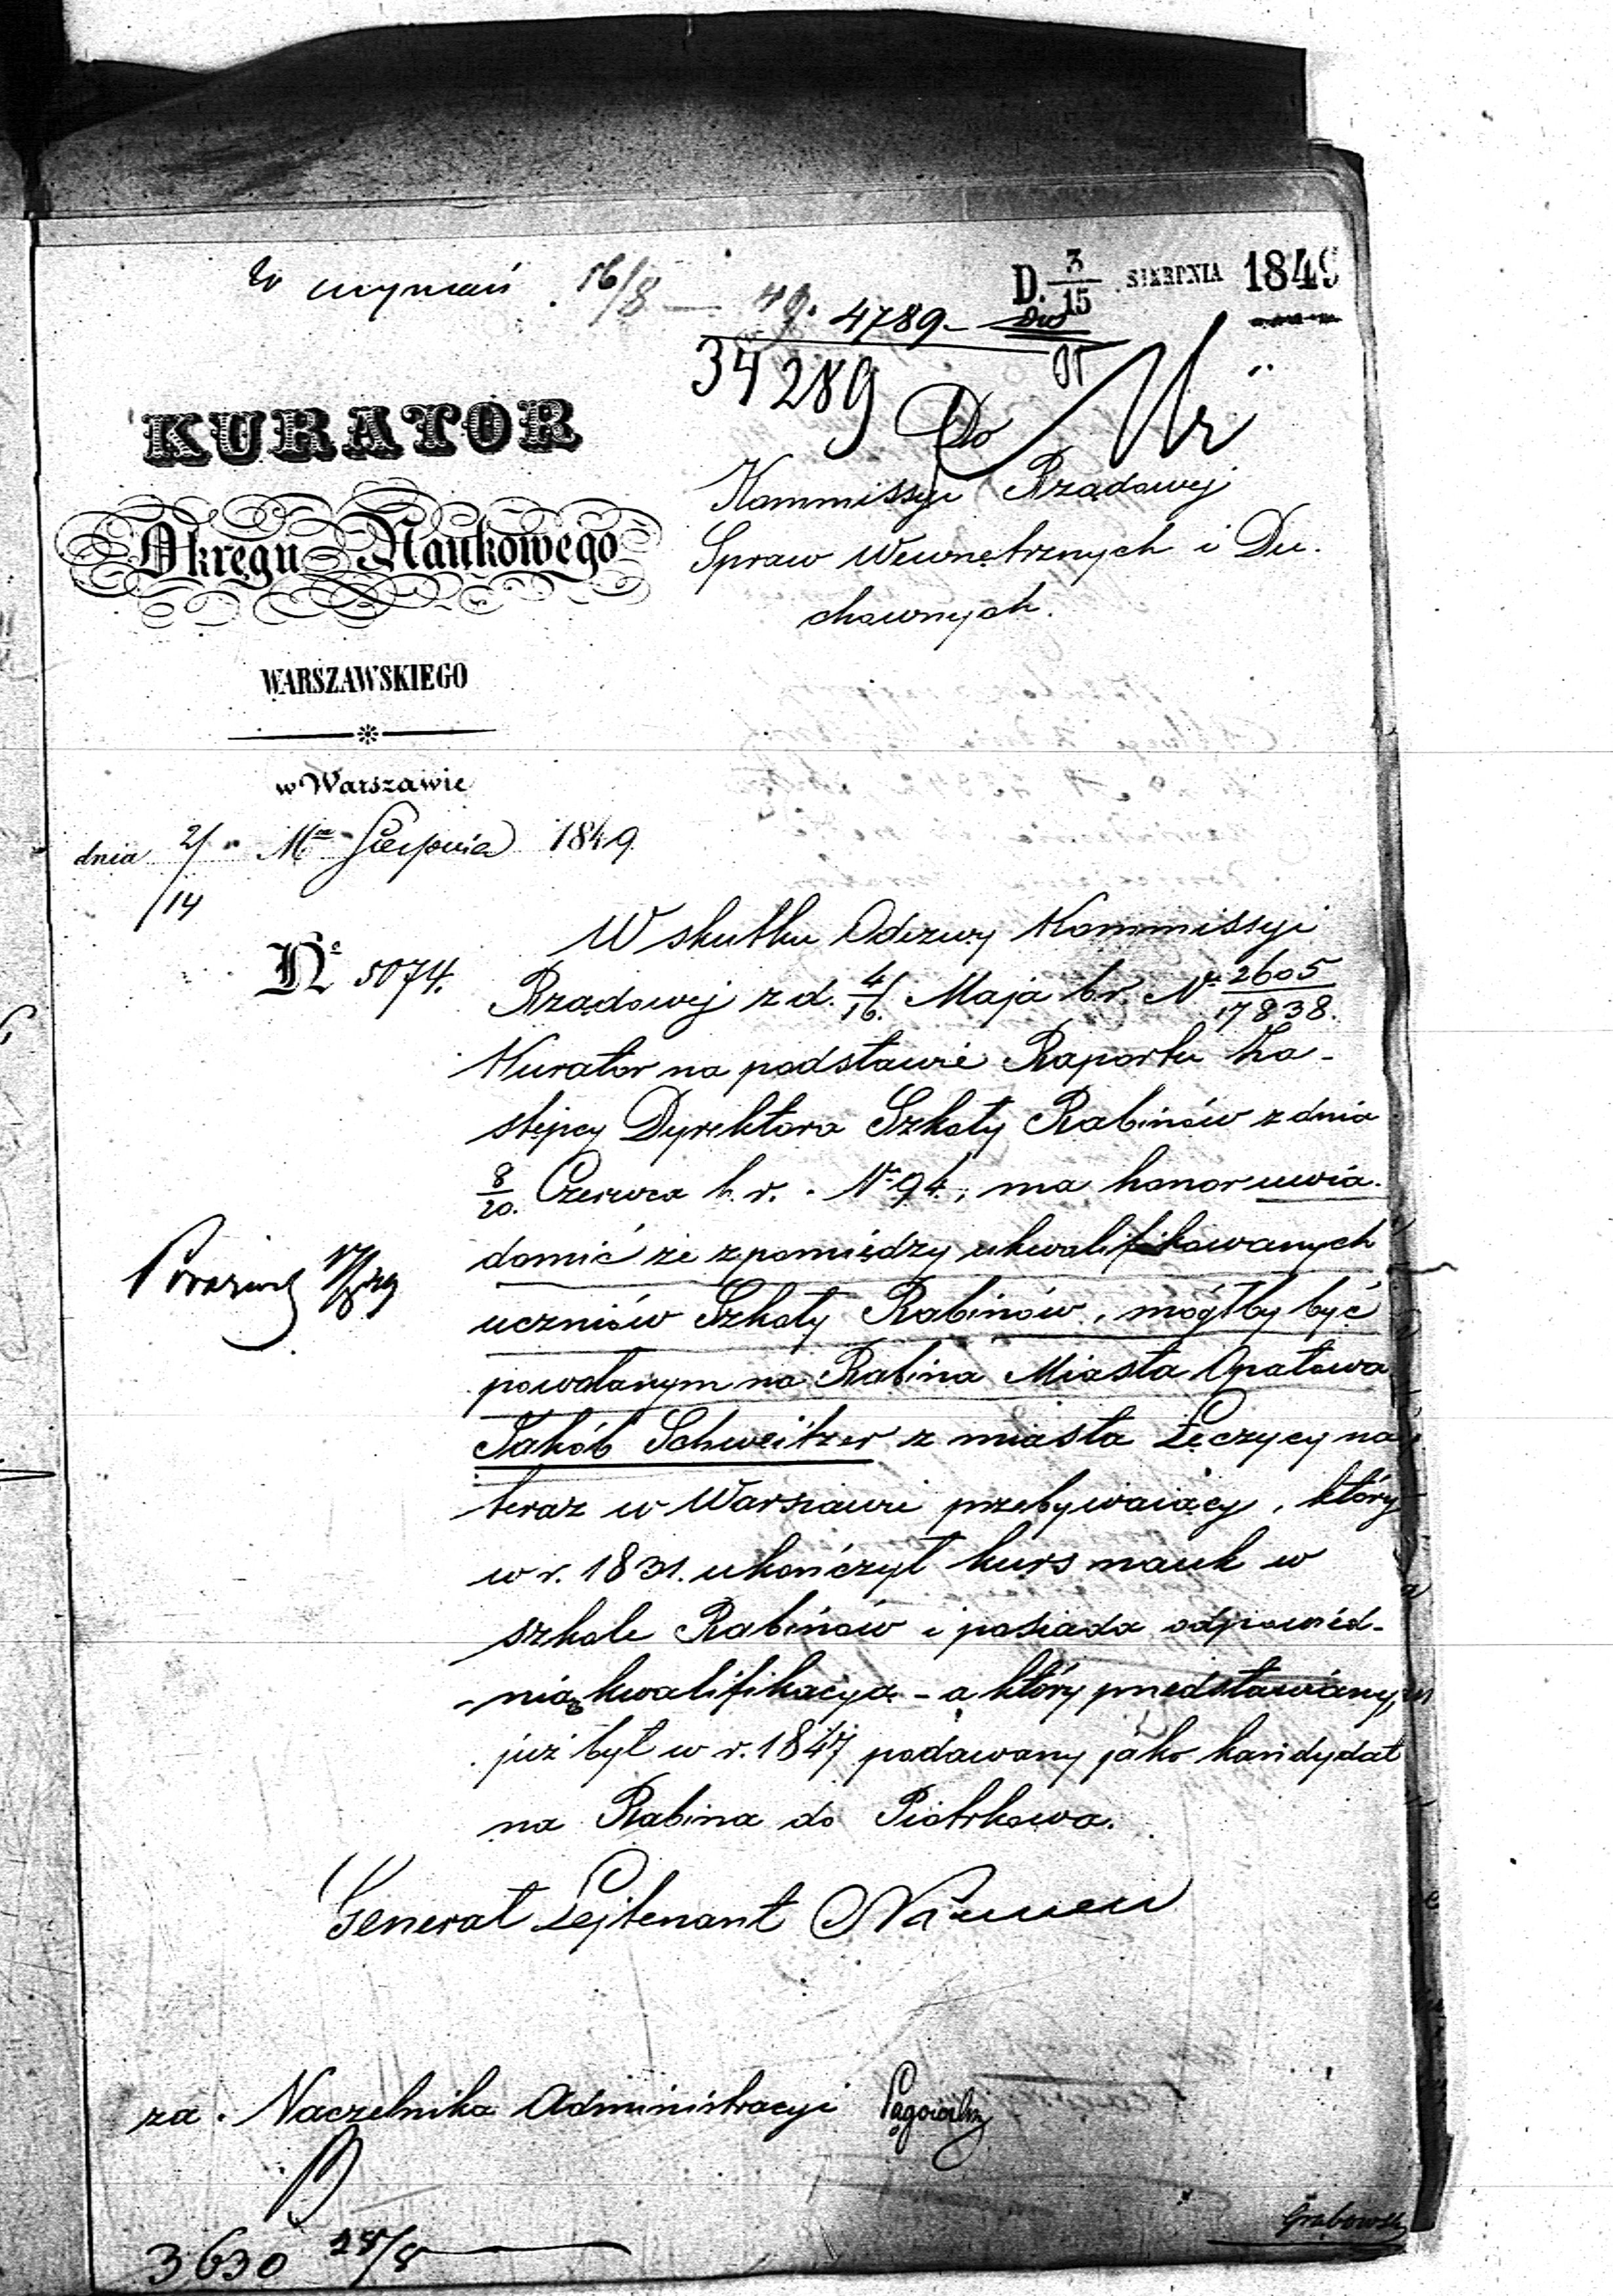 16/8 — 49. 4789.
D. 3/15 SIERPNIA 1849
34289
KURATOR
Okręgu Naukowego
WARSZAWSKIEGO
w Warszawie
dnia 2/14 Mca Sierpnia 1849
No 5074.
Do
Kommissyi Rządowej
Spraw Wewnętrznych i Du-
chownych.
W skutku Odezwy Kommissyi
Rządowej z d. 4/16. Maja b.r. No 2605/17838.
Kurator na podstawie Raportu Za-
stępcy Dyrektora Szkoły Rabinów z dnia
8/20. Czerwca b.r. No 94, ma honor uwia-
domić że z pomiędzy ukwalifikowanych
uczniów Szkoły Rabinów, mógłby być
powołanym na Rabina Miasta Opatowa
Jakób Schweitzer z miasta Łęczycy na
teraz w Warszawie przebywaiący, który
w r. 1831. ukończył kurs nauk w
szkole Rabinów i posiada odpowied-
nią kwalifikacyą - a który przedstawiany
już był w r. 1847 podawany jako kandydat
na Rabina do Piotrkowa.
Generał Lejtenant
za Naczelnika Administracyi
3630 28/8
Grabowski